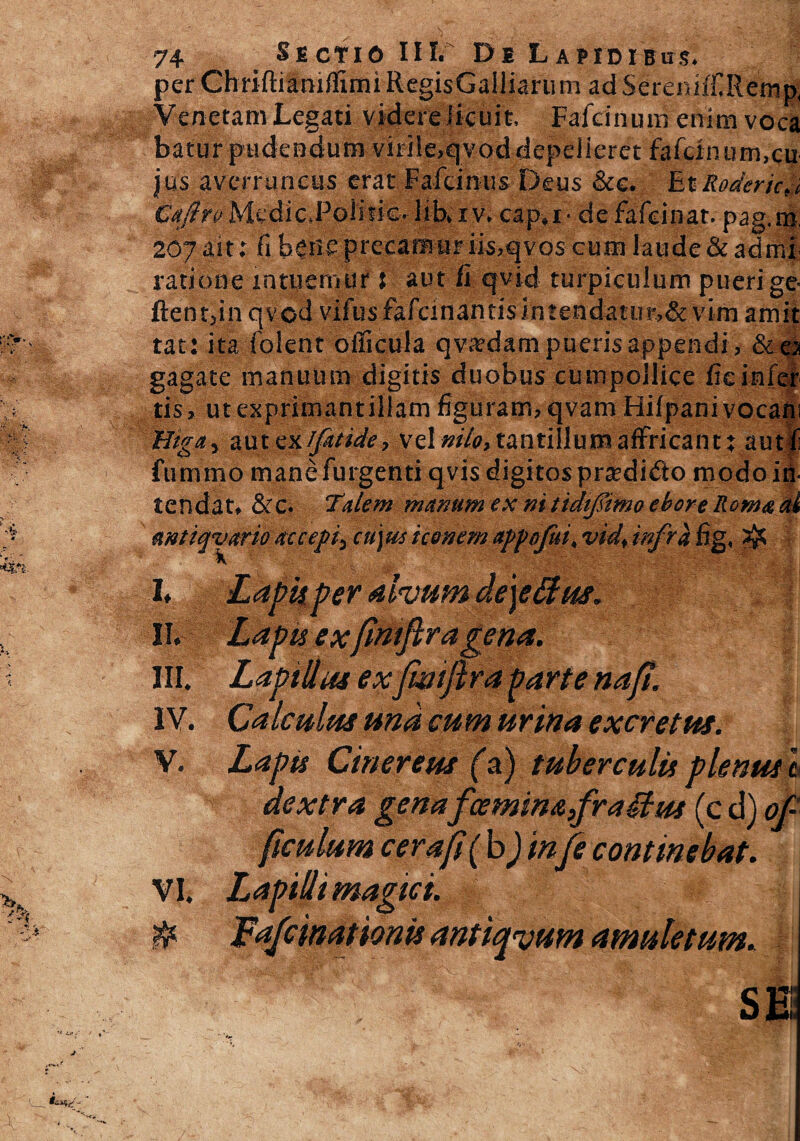 74 SECTIO III. DE LAPIDIBUS.
per Chriſtianiſſimi RegisGalliarum ad Sereniſſ.Remp.
Venetam Legati videre licuit. Faſcinum enim voca
batur pudendum virile,qvod depelleret faſcinum,cu
jus averruncus erat Faſcinus Deus &c. Et Roderic. à
Caſtro Medic.Politic. lib. 1v. cap. 1. de faſcinat. pag. m
207 ait: ſi bene precamur iis,qvos cum laude & admi
ratione intuemur: aut ſi qvid turpiculum pueri ge
ſtent,in qvod viſus faſcinantis intendatur,& vim amit
tat: ita ſolent oſſicula qvædam pueris appendi, & ex
gagate manuum digitis duobus cum pollice ſic inſer
tis, ut exprimant illam figuram, qvam Hiſpani vocant
Higa, aut ex Iſatide, vel nilo, tantillum affricant: aut ſi
ſummo mane ſurgenti qvis digitos prædicto modo in
tendat. &c. Talem manum ex nitidiſſimo ebore Romæ ab
antiqvario accepi, cujus iconem appoſui. vid. infrà fig. ※
I. Lapis per alvum dejectus.
II. Lapis ex ſiniſtra gena.
III. Lapillus ex ſiniſtra parte naſi.
IV. Calculus unà cum urina excretus.
V. Lapis Cinereus (a) tuberculis plenus è
dextra gena fœminæ,fractus (c d) oſ-
ſiculum ceraſi (b) in ſe continebat.
VI. Lapilli magici.
※ Faſcinationis antiqvum amuletum.
SE